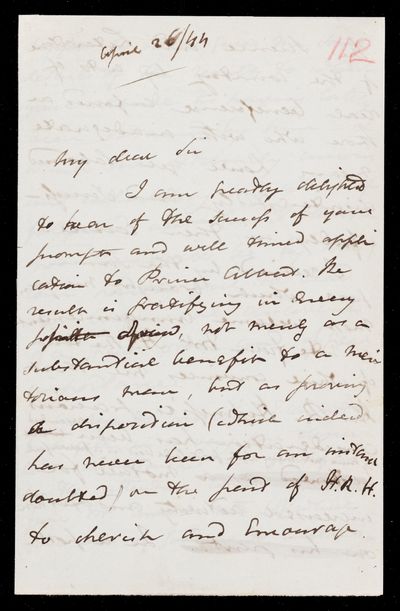 April 26/44
112
My dear Sir
I am greatly delighted
to hear of the success of your
prompt and well timed appli
cation to Prince Albert. The
result is gratifying in every
not merely as a
substantial benefit to a meri
torious man, but as proving
a disposition (which indeed
has never been for an instant
doubted) on the part of H.R.H.
to cherish and encourage